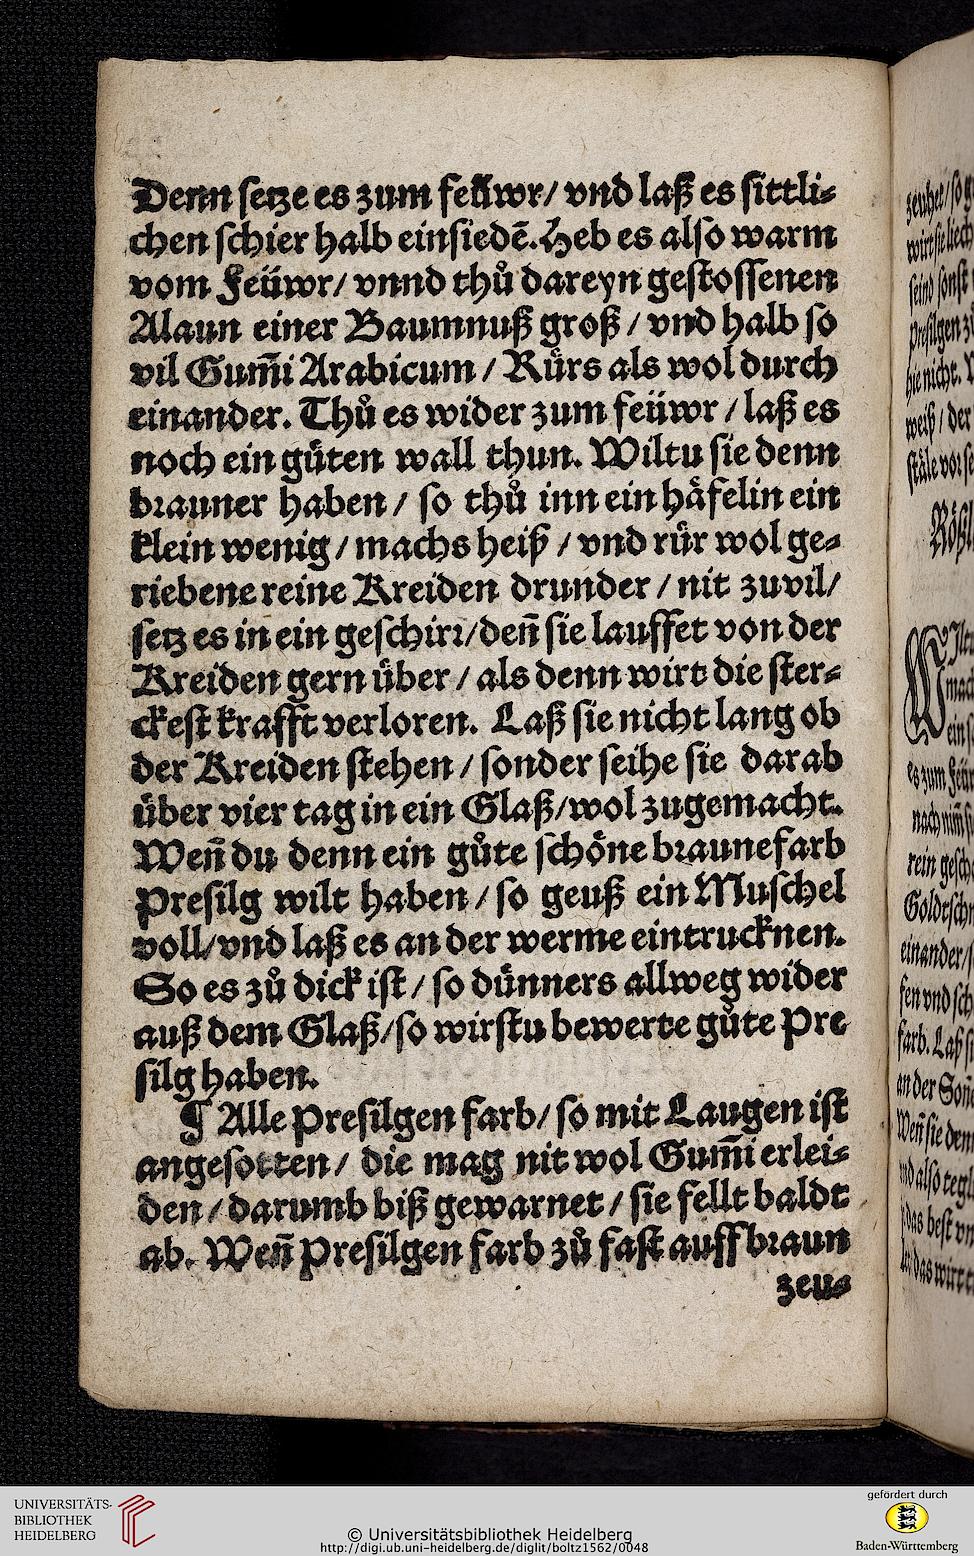 Denn setze es zum feüwr/ vnd laß es sittli-
chen schier halb einsiedē. Heb es also warm
vom Feüwr/ vnnd thů dareyn gestossenen
Alaun einer Baumnuß groß / vnd halb so
vil Gum̄i Arabicum / Rürs als wol durch
einander. Thů es wider zum feüwr / laß es
noch ein güten wall thun. Wiltu sie denn
brauner haben / so thů inn ein häfelin ein
klein wenig / machs heiß / vnd rür wol ge-
riebene reine Kreiden drunder / nit zuvil/
setz es in ein geschirr/den̄ sie lauffet von der
Kreiden gern über / als denn wirt die ster-
ckest krafft verloren. Laß sie nicht lang ob
der Kreiden stehen / sonder seihe sie darab
über vier tag in ein Glaß/wol zugemacht.
Wen̄ du denn ein gůte schöne braune farb
Presilg wilt haben / so geuß ein Muschel
voll/vnd laß es an der werme eintrucknen.
So es zů dick ist / so dünners allweg wider
auß dem Glaß/so wirstu bewerte gůte Pre
silg haben.
¶ Alle Presilgen farb/ so mit Laugen ist
angesotten/ die mag nit wol Gum̄i erlei-
den / darumb biß gewarnet / sie fellt baldt
ab. Wen̄ Presilgen farb zů fast auff braun
zeu-
zeuhet/so
wirt sie
seind sonst
Presilgen
hie nicht.
weiß / der
es zum
rein
einander/
farb. Laß
an der
Wen̄ sie
das best
das wirt
UNIVERSITÄTS-
BIBLIOTHEK
HEIDELBERG
© Universitätsbibliothek Heidelberg
http://digi.ub.uni-heidelberg.de/diglit/boltz1562/0048
gefördert durch
Baden-Württemberg